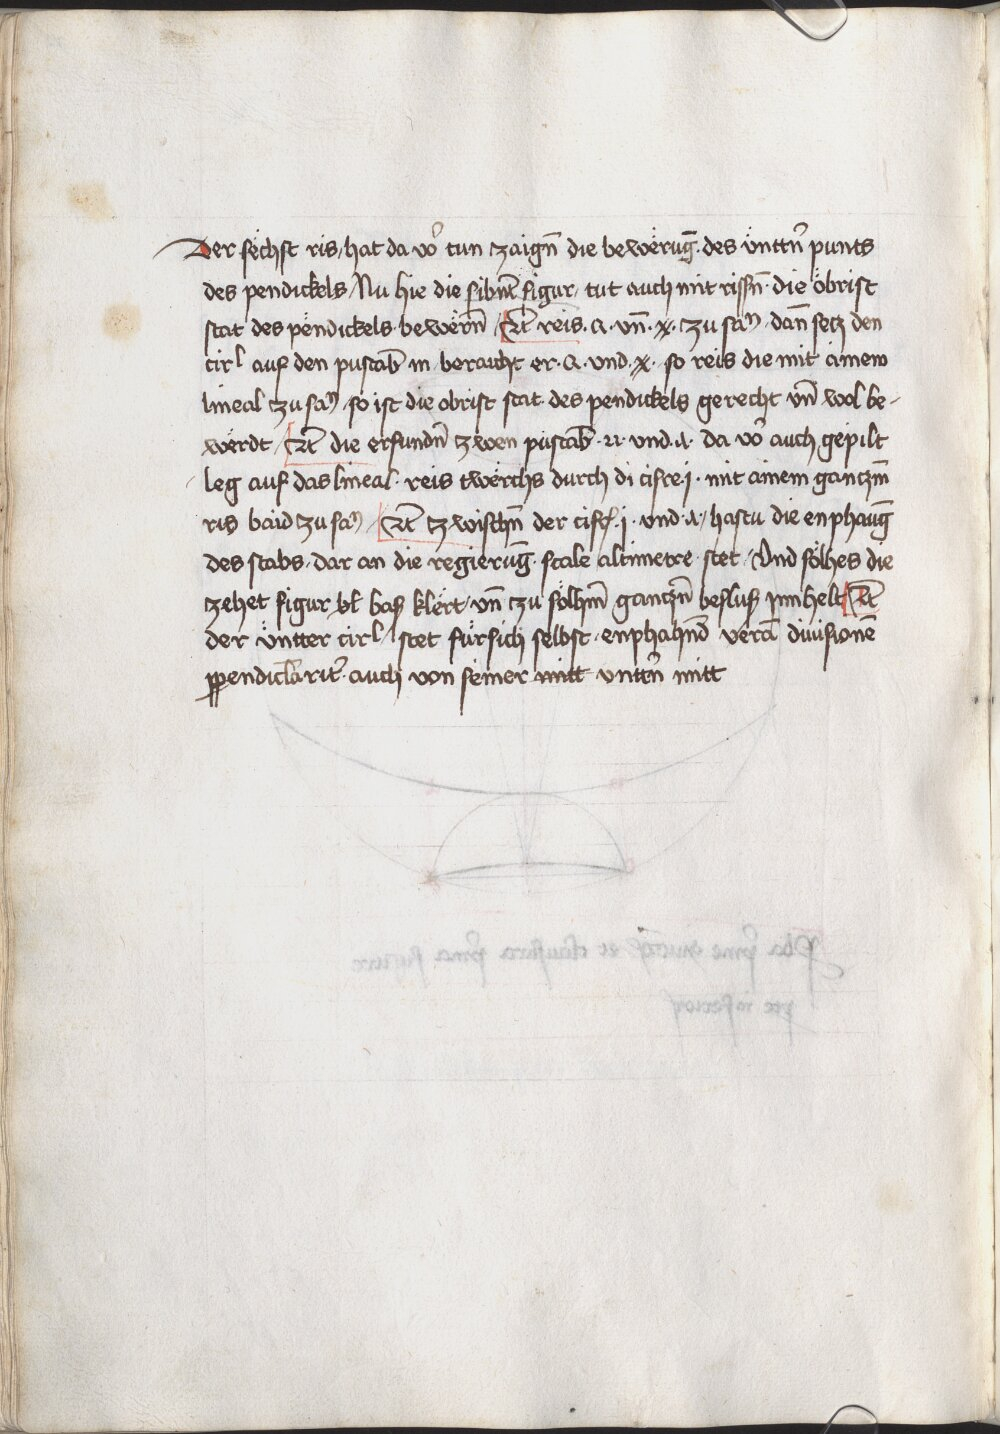 Der sëchst ris / hat da vor̄ tun zaign̄ die bewëruḡ · des ünttn̄ punts
des pendickels / Nu hie die sibnt̄ figur / tut auch mit rissn̄ · die öbrist
stat des pëndickels · bewërn̄ / Itē reis · a · vn̄ · x · zu sam̄ · dan̄ secz den
cirl auf den pustab̄ m / beraicht er · a · vnd · x · so reis die mit ainem
lineal zu sam̄ / so ist die obrist stat des pendickels gerecht vn̄ wol be-
werdt / Itē die erfundn̄ zwen pustab̄ · n · vnd · a · da vor̄ auch gepilt
leg auf das lineal · reis twërchs durch di cifre · j · mit ainem ganczm̄
ris baid zu sam̄ / Itē zwischn̄ der cifr̄ · j · vnd · a · / hastu die enphauḡ
des stabs · dar an die regieruḡ · scale altimetre · stet / Und sölhes die
zehet figur · vl bas klërt · vn̄ zu sölhm̄ ganczn̄ besluss jnnhelt Itē
der üntter cirl / stet für sich selbst · enphahn̄d verā diuisionē
p̄pendicl̄arit̄ · auch von seiner mitt vnttn̄ mitt